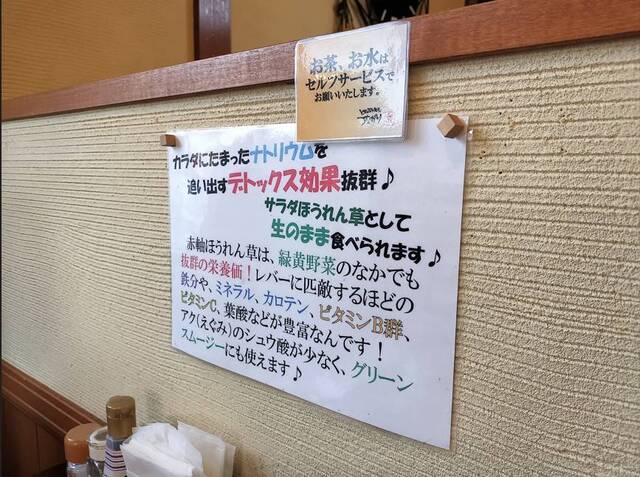 お茶、お水は
セルフサービスで
お願いいたします。
カラダにたまったナトリウムを
追い出すデトックス効果抜群♪
サラダほうれん草として
生のまま食べられます♪
赤軸ほうれん草は、緑黄野菜のなかでも
抜群の栄養価！レバーに匹敵するほどの
鉄分や、ミネラル、カロテン、ビタミンB群、
ビタミンC、葉酸などが豊富なんです！
アク（えぐみ）のシュウ酸が少なく、グリーン
スムージーにも使えます♪